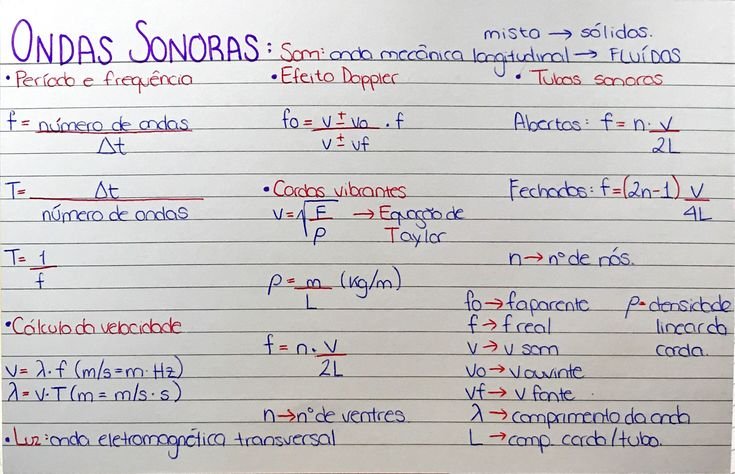 mista → sólidos.
ONDAS SONORAS: Som: onda mecânica longitudinal → FLUÍDOS
• Período e frequência
f = número de ondas / Δt
T = Δt / número de ondas
T = 1 / f
• Cálculo da velocidade
v = λ . f (m/s = m . Hz)
λ = v . T (m = m/s . s)
• Luz: onda eletromagnética transversal
• Efeito Doppler
fo = v ± vo / v ± vf . f
• Cordas vibrantes
v = √F / ρ → Equação de
Taylor
ρ = m / L (kg/m)
f = n . v / 2L
n → nº de ventres.
• Tubos sonoros
Abertos: f = n . v / 2L
Fechados: f = (2n-1) v / 4L
n → nº de nós.
fo → f aparente
f → f real
v → v som
vo → v ouvinte
vf → v fonte
λ → comprimento da onda
L → comp. corda/tubo.
ρ = densidade
linear da
corda.